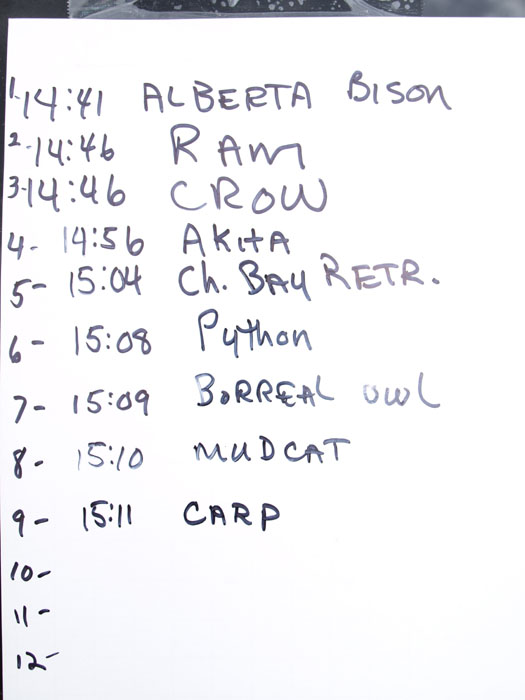 1. 14:41 ALBERTA BISON
2. 14:46 RAM
3. 14:46 CROW
4- 14:56 AKITA
5- 15:04 Ch. BAY RETR.
6- 15:08 Python
7- 15:09 BORREAL OWL
8- 15:10 MUDCAT
9- 15:11 CARP
10-
11-
12-